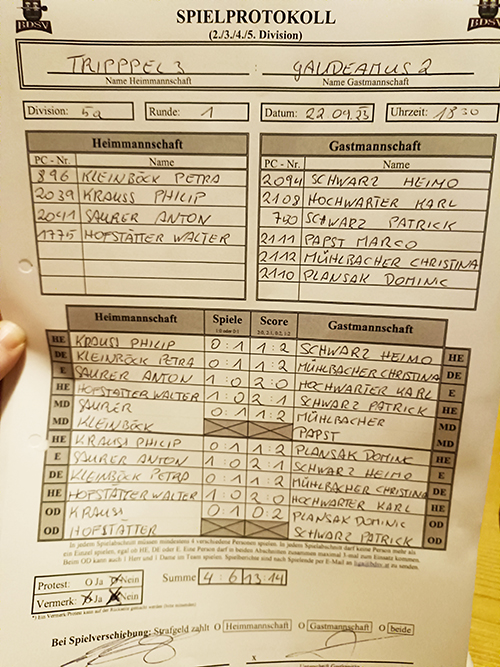 BDSV
SPIELPROTOKOLL
(2./3./4./5. Division)
TRIPPPEL 3 : GAUDEAMUS 2
Name Heimmannschaft Name Gastmannschaft
Division: 5a Runde: 1 Datum: 22.09.23 Uhrzeit: 1830
Heimmannschaft Gastmannschaft
PC - Nr. Name PC - Nr. Name
896 KLEINBÖCK PETRA 2094 SCHWARZ HEIMO
2039 KRAUSS PHILIP 2108 HOCHWARTER KARL
2041 SAURER ANTON SCHWARZ PATRICK
1775 HOFSTÄTTER WALTER 2111 PAPST MARCO
2112 MÜHLBACHER CHRISTINA
2110 PLANSAK DOMINIC
Heimmannschaft Spiele Score Gastmannschaft
1:0 oder 0:1 2:0, 2:1, 0:2, 1:2
HE KRAUSS PHILIP 0:1 1:2 SCHWARZ HEIMO HE
DE KLEINBÖCK PETRA 0:1 1:2 MÜHLBACHER CHRISTINA DE
E SAURER ANTON 1:0 2:0 HOCHWARTER KARL E
HE HOFSTÄTTER WALTER 1:0 2:1 SCHWARZ PATRICK HE
MD SAURER 0:1 1:2 MÜHLBACHER MD
MD KLEINBÖCK PAPST MD
HE KRAUSS PHILIP 0:1 1:2 PLANSAK DOMINIC HE
E SAURER ANTON 1:0 2:1 SCHWARZ HEIMO E
DE KLEINBÖCK PETRA 0:1 1:2 MÜHLBACHER CHRISTINA DE
HE HOFSTÄTTER WALTER 1:0 2:0 HOCHWARTER KARL HE
OD KRAUSS 0:1 0:2 PLANSAK DOMINIC OD
OD HOFSTÄTTER SCHWARZ PATRICK OD
In jedem Spielabschnitt müssen mindestens 4 verschiedene Personen spielen. In jedem Spielabschnitt darf keine Person mehr als
ein Einzel spielen, egal ob HE, DE oder E. Eine Person darf in beiden Abschnitten zusammen maximal 3-mal zum Einsatz kommen.
Beim OD kann auch 1 Herr und 1 Dame im Team spielen. Spielberichte sind nach Spielende per E-Mail an
Protest: O Ja Nein Summe 4:6 13:14
Vermerk: Ja Nein
Bei Spielverschiebung: Strafgeld zahlt O Heimmannschaft O Gastmannschaft O beide
x